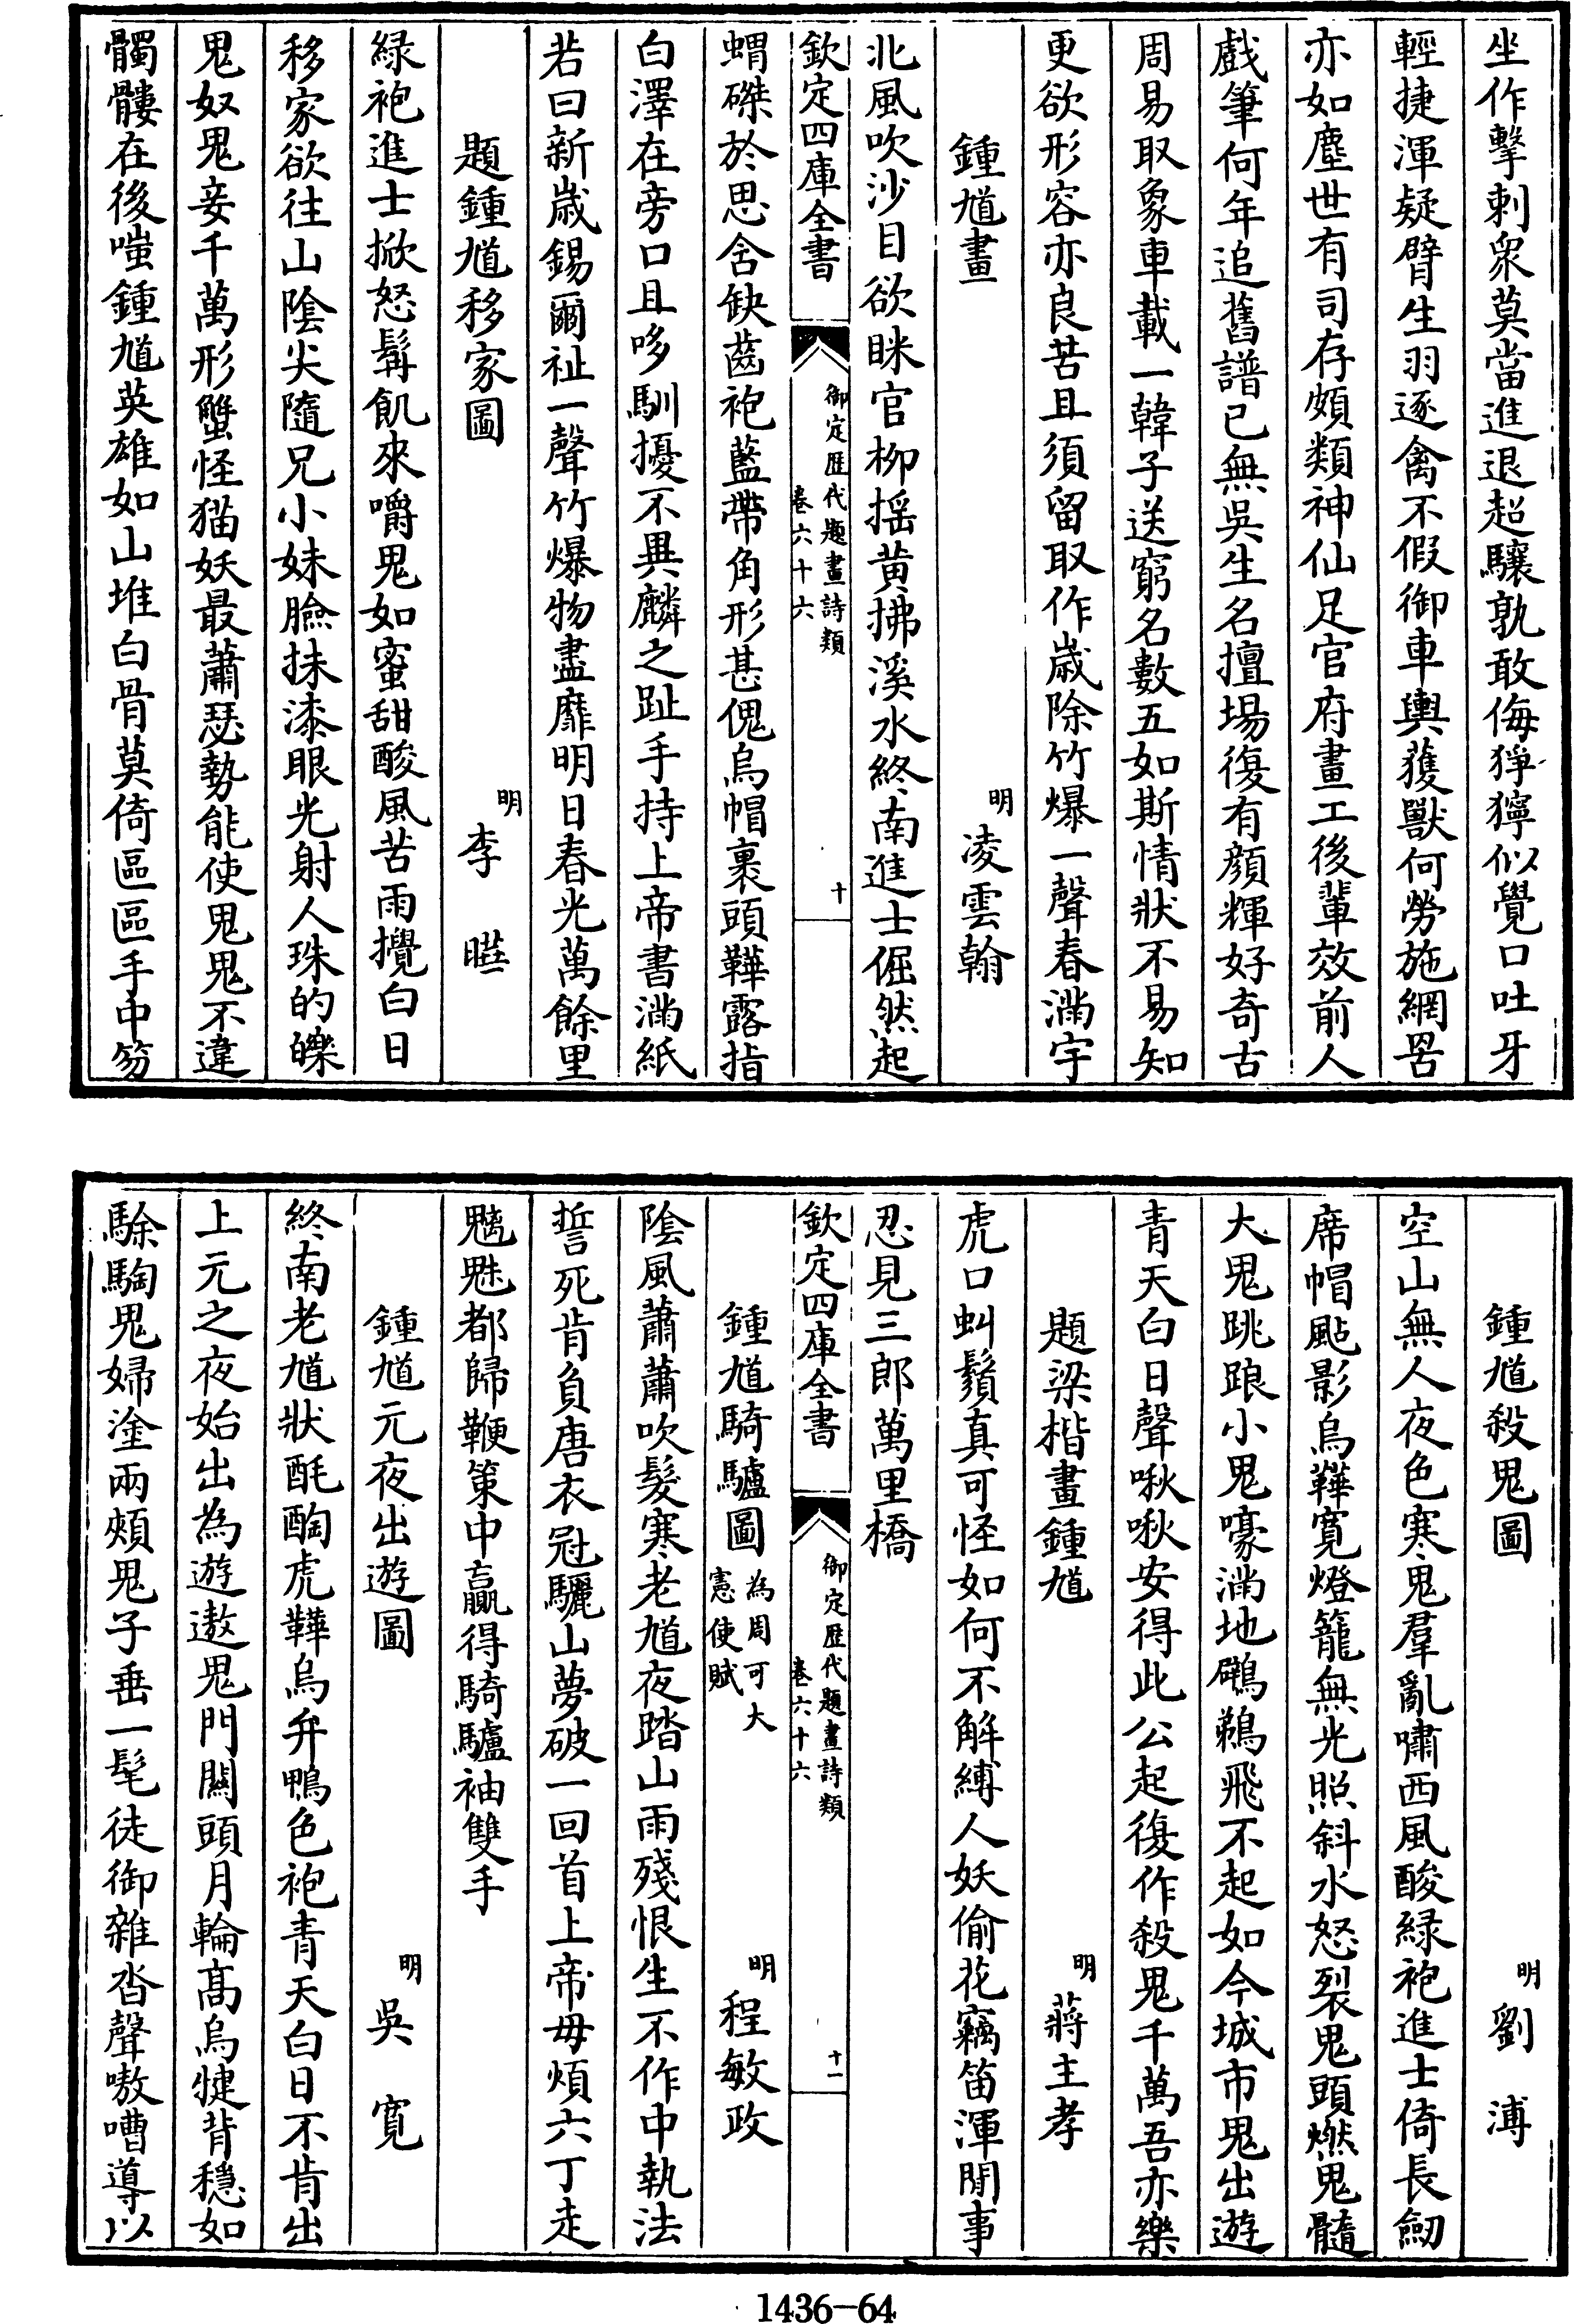 坐作擊刺衆莫當進退超驤孰敢侮猙獰似覺口吐牙
輕捷渾疑臂生羽逐禽不假御車輿獲獸何勞施網罟
亦如塵世有司存頗類神仙足官府畫工後輩效前人
戲筆何年追舊譜已無吳生名擅場復有顔輝好奇古
周易取象車載一韓子送窮名數五如斯情狀不易知
更欲形容亦良苦且須留取作嵗除竹爆一聲春滿宇
鍾馗畫 明 凌雲翰
北風吹沙目欲眯官柳揺黄拂溪水終南進士倔然起
欽定四庫全書 御定歴代題畫詩類 卷六十六 十
蝟磔於思含缺齒袍藍帶角形甚傀烏帽裹頭鞾露指
白澤在旁口且哆馴擾不異麟之趾手持上帝書滿紙
若曰新嵗錫爾祉一聲竹爆物盡靡明日春光萬餘里
題鍾馗移家圖 明 李曔
緑袍進士掀怒髯飢來嚼鬼如蜜甜酸風苦雨攪白日
移家欲往山隂尖隨兄小妹臉抹漆眼光射人珠的皪
鬼奴鬼妾千萬形蟹怪猫妖最蕭瑟勢能使鬼鬼不違
髑髏在後嗤鍾馗英雄如山堆白骨莫倚區區手中笏
鍾馗殺鬼圖 明 劉溥
空山無人夜色寒鬼羣亂嘯西風酸緑袍進士倚長劒
席帽颭影烏鞾寛燈籠無光照斜水怒裂鬼頭燃鬼髓
大鬼跳踉小鬼嚎滿地鵰鵜飛不起如今城市鬼出遊
青天白日聲啾啾安得此公起復作殺鬼千萬吾亦樂
題梁楷畫鍾馗 明 蔣主孝
虎口虯鬚真可怪如何不解縛人妖偷花竊笛渾閒事
忍見三郎萬里橋
欽定四庫全書 御定歴代題畫詩類 卷六十六 十一
鍾馗騎驢圖 為周可大憲使賦 明 程敏政
隂風蕭蕭吹髮寒老馗夜踏山雨殘恨生不作中執法
誓死肯負唐衣冠驪山夢破一回首上帝毋煩六丁走
魑魅都歸鞭策中贏得騎驢袖雙手
鍾馗元夜出遊圖 明 吳寛
終南老馗狀酕醄虎鞾烏弁鴨色袍青天白日不肯出
上元之夜始出為遊遨鬼門關頭月輪髙烏犍背穩如
駼騊鬼婦塗兩頰鬼子垂一髦徒御雜沓聲嗷嘈導以
1436-64